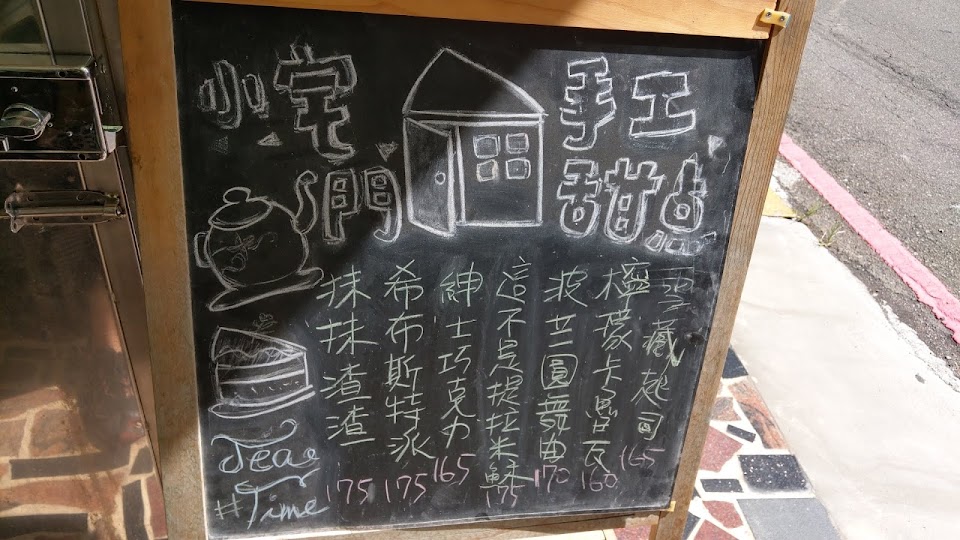 小宅門
手工甜點
雪藏起司 165
檸檬卡密瓦 160
波蘭圓舞曲 170
這不是提拉米蘇 175
紳士巧克力 165
希布斯特派 175
抹抹渣渣 175
Tea
#Time